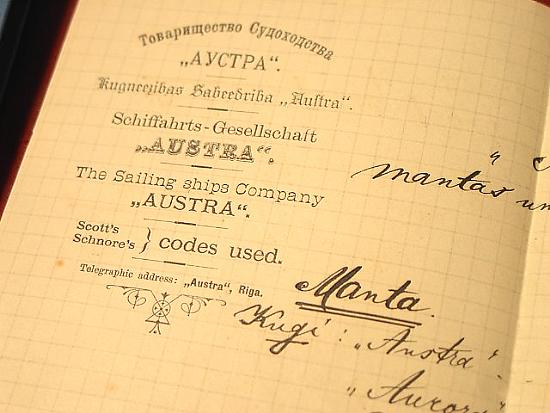 Товарищество Судоходства
„АУСТРА“.
Kugneezibas Sabeedriba „Austra“.
Schiffahrts-Gesellschaft
„AUSTRA“.
The Sailing ships Company
„AUSTRA“.
Scott's
Schnore's } codes used.
Telegraphic address: „Austra“, Riga.
mantas un
Manta.
Kugi: „Austra“
„Aurora“